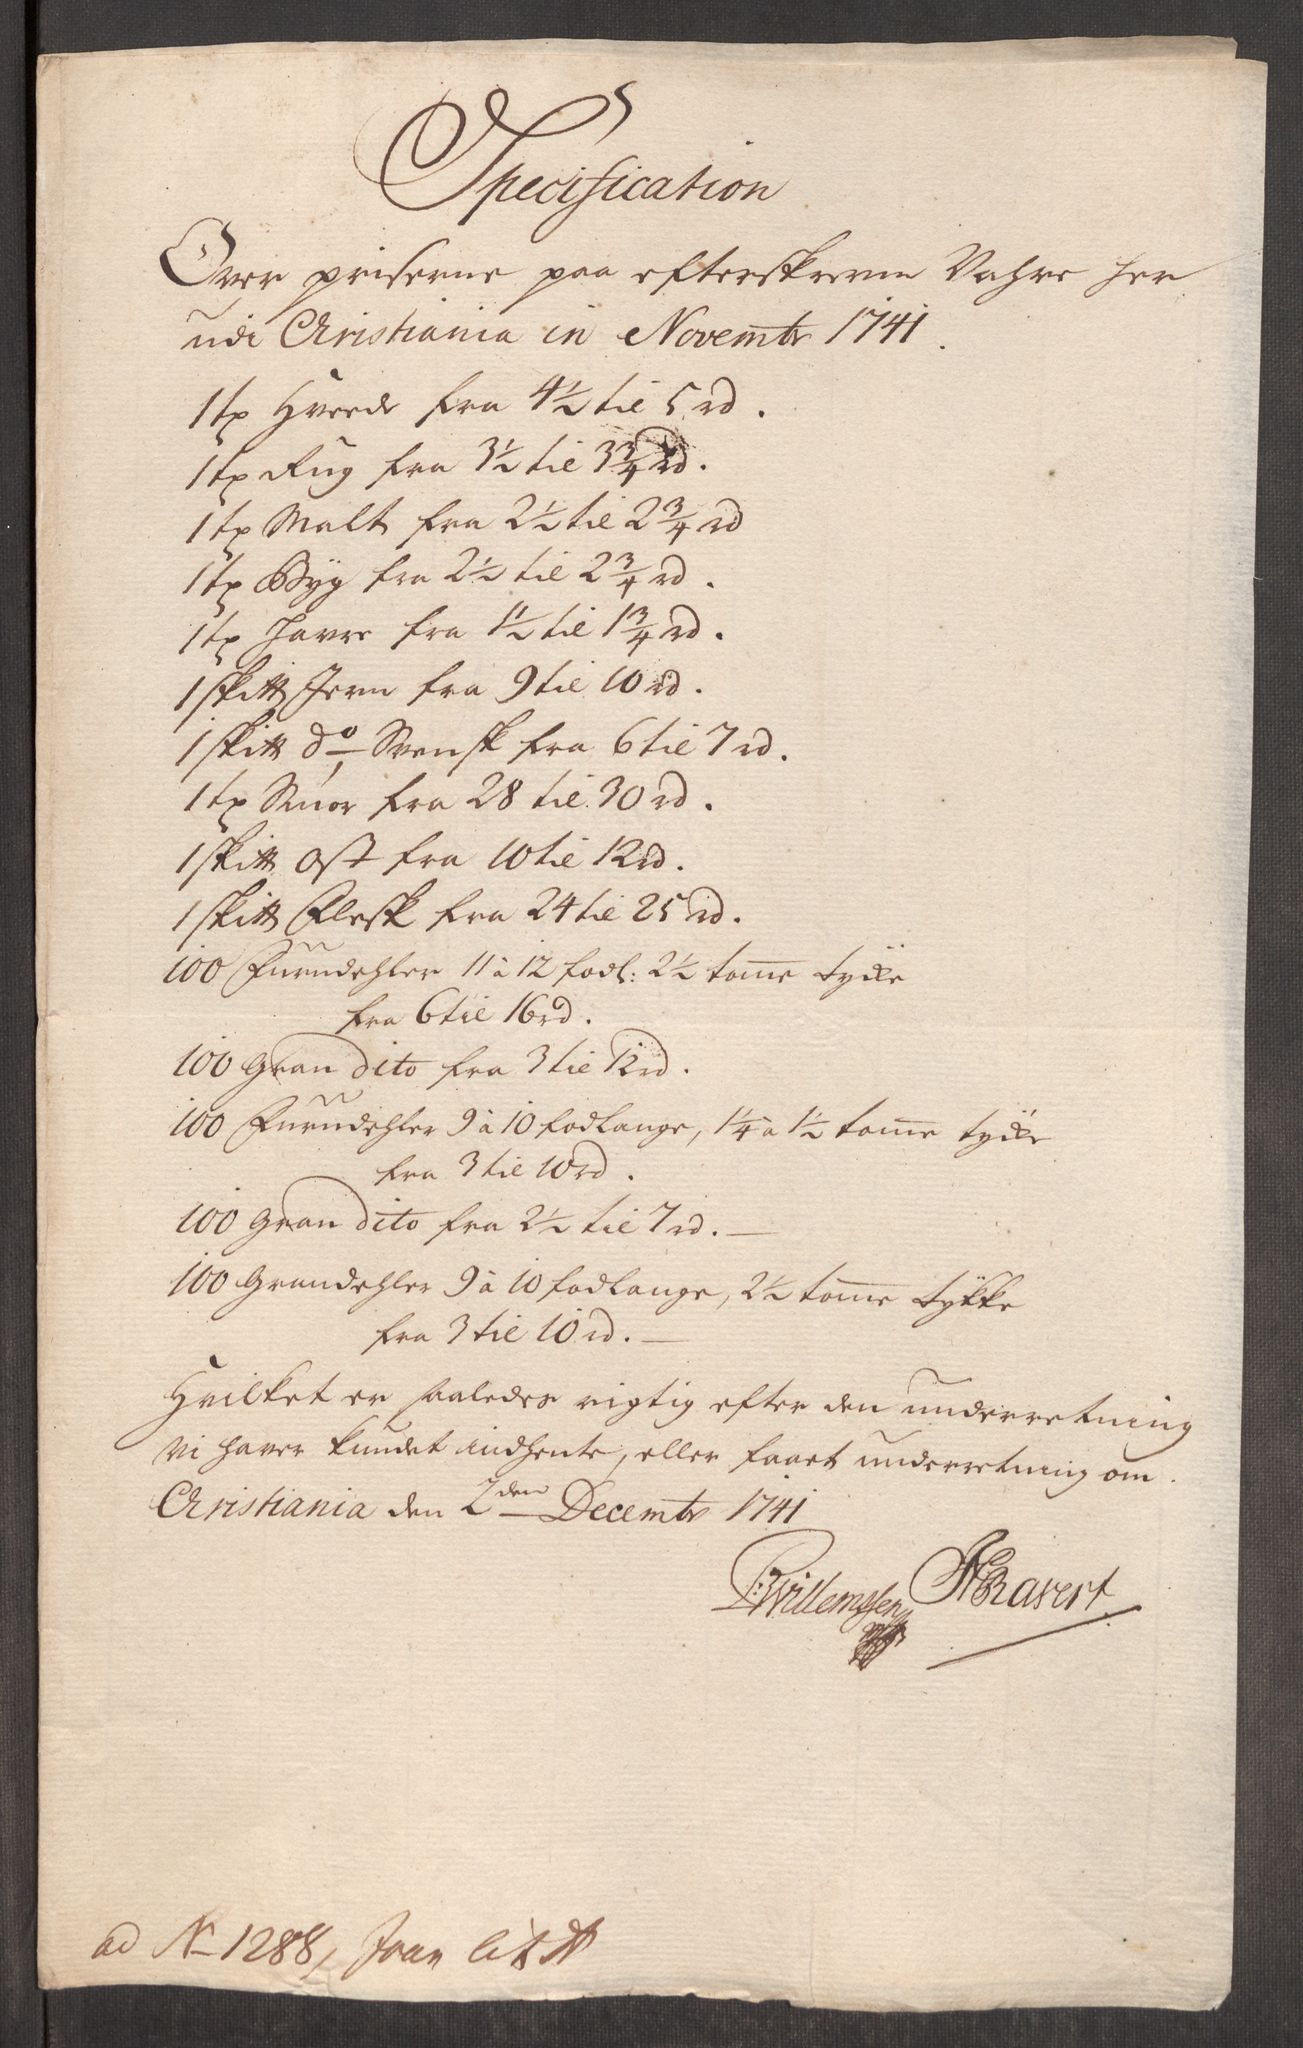 Specification
Over priserne paa efterskrevne Vahre her
udi Christiania in Novembr 1741.
1 tɲ Hvede fra 4½ til 5 rd.
1 tɲ Rug fra 3½ til 3¾ rd.
1 tɲ Malt fra 2½ til 2¾ rd
1 tɲ Byg fra 2½ til 2¾ rd.
1 tɲ Havre fra 1½ til 1¾ rd.
1 skitt Jern fra 9 til 10 rd.
1 skitt do Svensk fra 6 til 7 rd.
1 tɲ Smør fra 28 til 30 rd.
1 skitt Ost fra 10 til 12 rd.
1 skitt Flesk fra 24 til 25 rd.
100 Furudehler 11 à 12 fodl: 2½ tomme tycke
fra 6 til 16 rd.
100 Gran dito fra 3 til 12 rd.
100 Furudehler 9 à 10 fodlange, 1¼ à 1½ tomme tycke
fra 3 til 10 rd.
100 Gran dito fra 2½ til 7 rd.
100 Grandehler 9 à 10 fodlange, 2½ tomme tykke
fra 3 til 10 rd.
Hvilket er saaledes rigtig efter den underretning
vi haver kundet indhente, eller faaet underretning om.
Christiania den 2den Decembr 1741
Willemssen Ravert
ad No 1288, Joan lit A